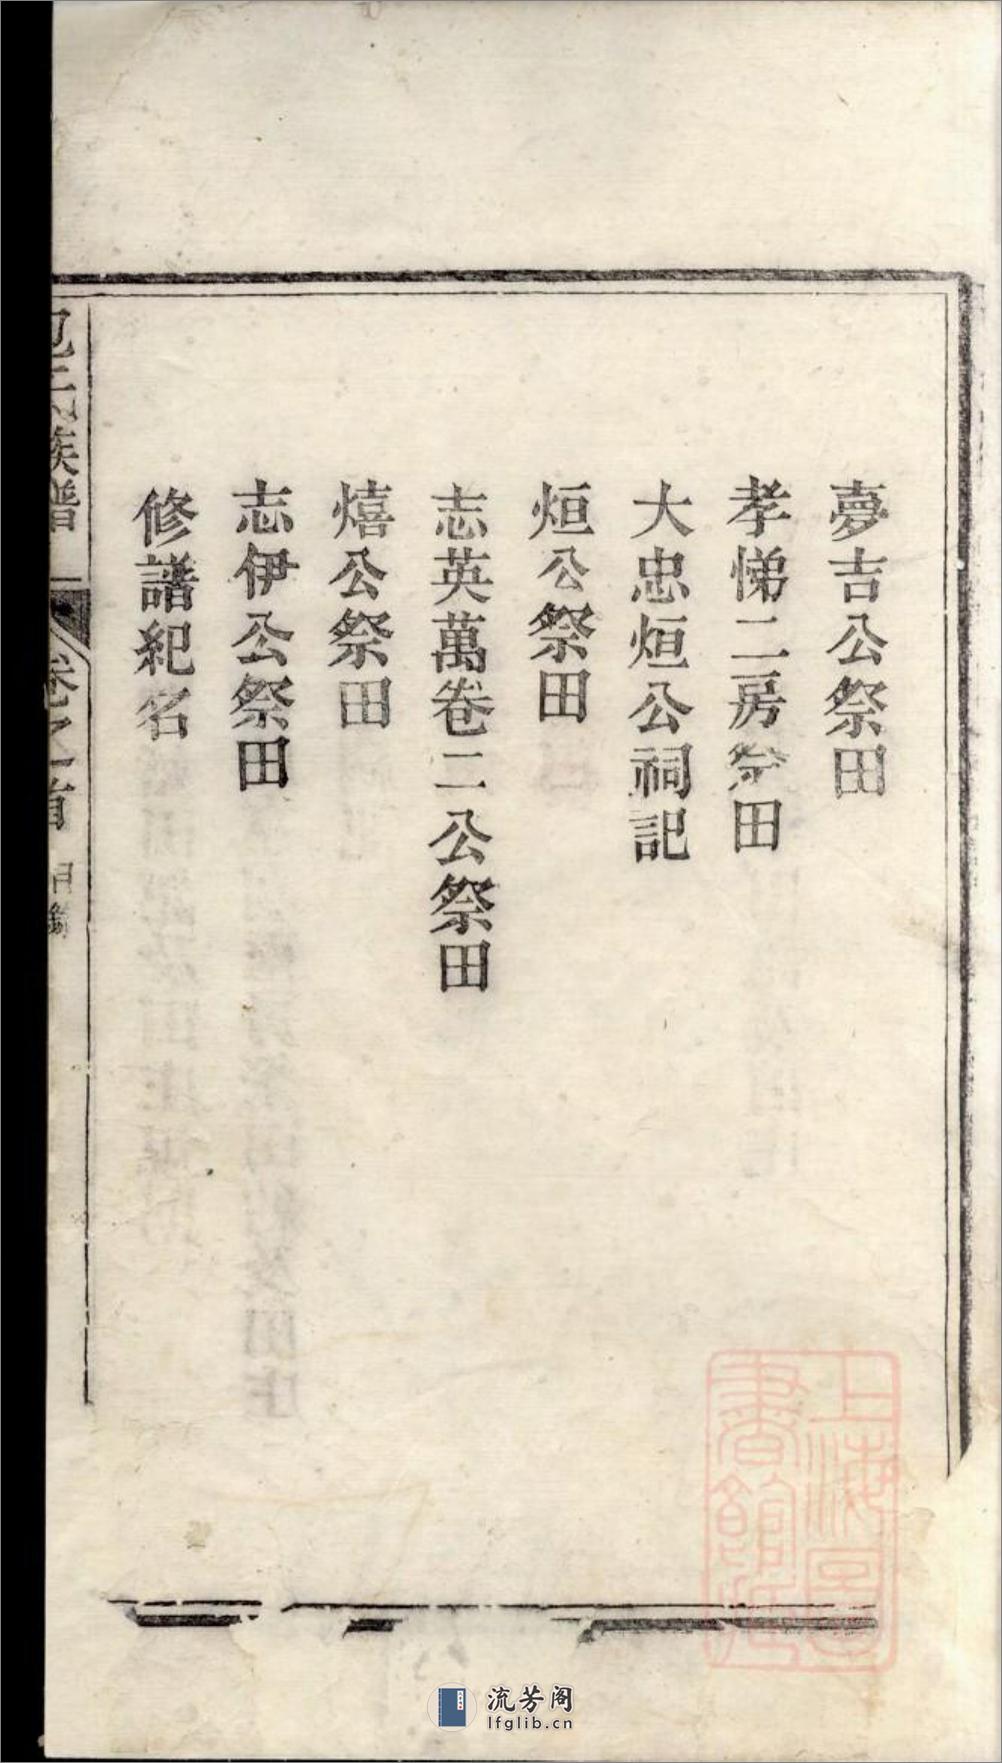 夢吉公祭田
孝悌二房祭田
大忠烜公祠記
烜公祭田
志英萬卷二公祭田
熺公祭田
志伊公祭田
修譜紀名
包氏族譜 卷之首 目錄
上海圖書館藏
流芳阁
lfglib.cn